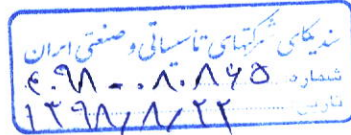 سندیکای شرکتهای تأسیساتی و صنعتی ایران
شماره
تاریخ ۱۳۹۸/۸/۲۲